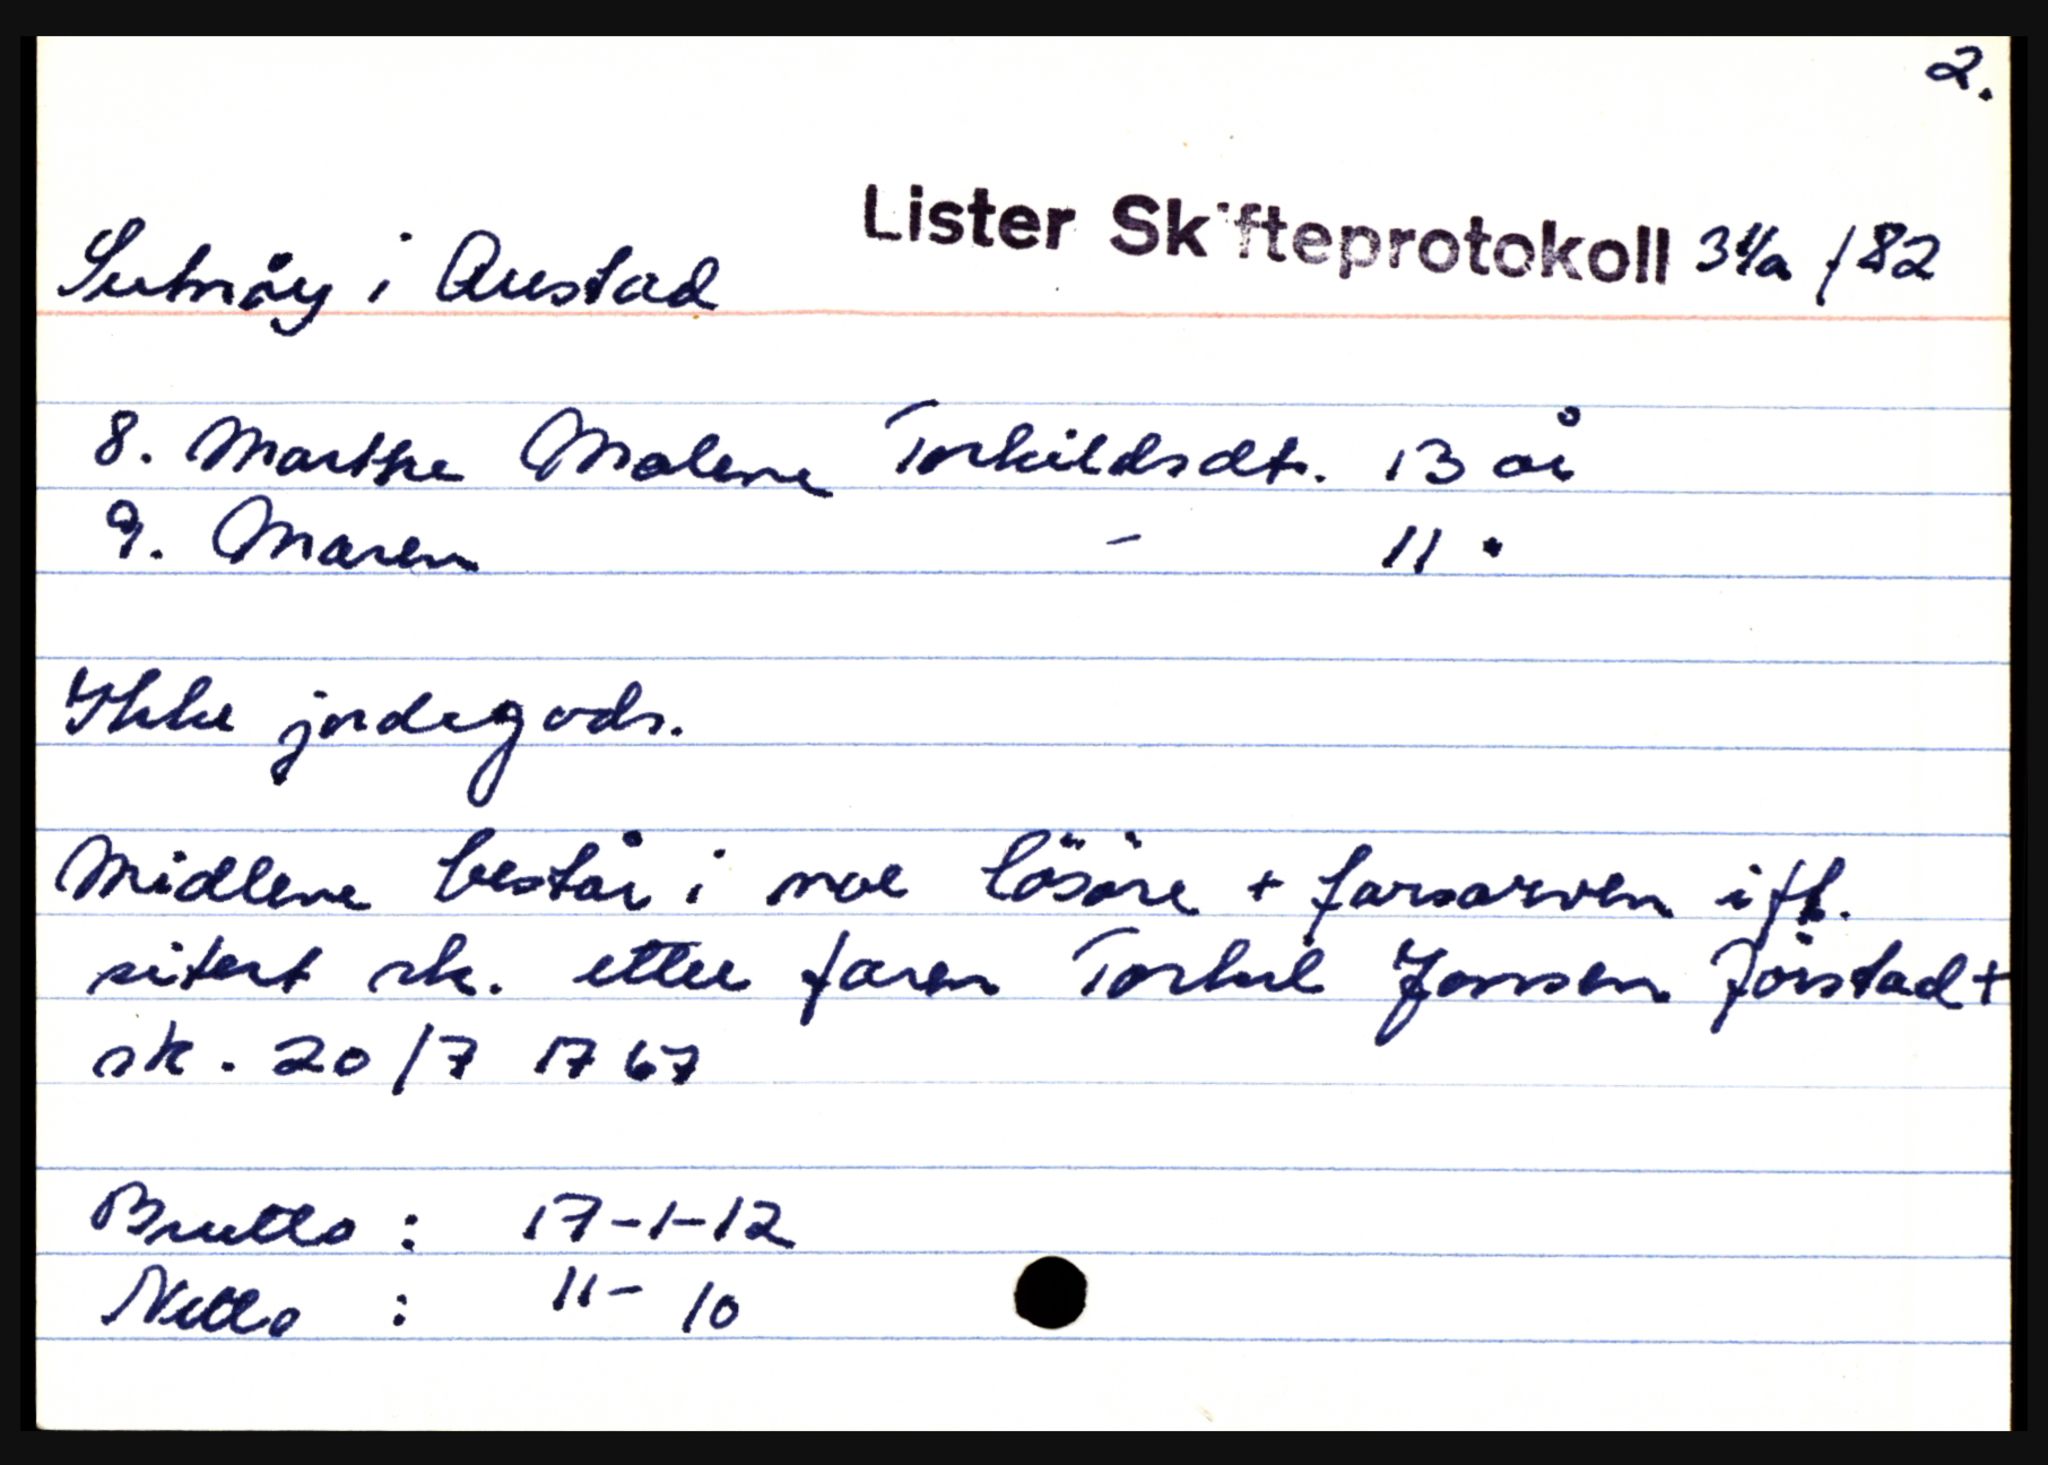 2.
Lister Skifteprotokoll 34a / 82
Sutnöy i Austad
8. Marthe Malene Torkildsdt. 13 år
9. Maren - 11 "
Ikke jordegods.
Midlene består i noe lösöre + farsarven ifl.
sitert sk. etter faren Torkil Jonsen Jörstad +
sk. 20/7 1767
Brutto : 17-1-12
Netto : 11- 10